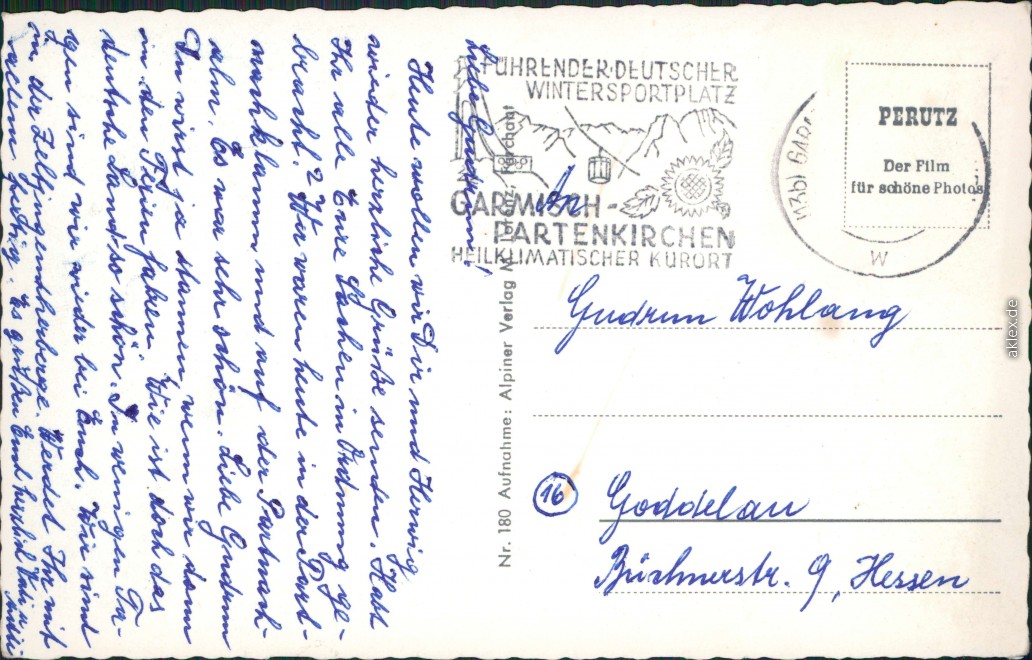 Liebe Gudrun!
Heute wollen wir Dir und Herwig
wieder herzliche Grüße senden. Habt
Ihr alle Eure Sachen in Ordnung ge-
bracht? Wir waren heute in der Part-
nachklamm und auf der Partnach-
alm. Es war sehr schön. Liebe Gudrun
Du wirst ja staunen wenn wir dann
in den Ferien fahren. Wie ist doch das
deutsche Land so schön. In wenigen Ta-
gen sind wir wieder bei Euch. Wir sind
in der Zeltjugendherberge. Werdet Ihr mit
allem fertig. Es grüßen Euch herzlich
FÜHRENDER·DEUTSCHER
WINTERSPORTPLATZ
GARMISCH-
PARTENKIRCHEN
HEILKLIMATISCHER KURORT
(13b) GAR
w
PERUTZ
Der Film
für schöne Photos
Nr. 180 Aufnahme: Alpiner Verlag M. Lorenz, Farchant
An
Gudrun Wohlang
(16) Goddelau
Büchnerstr. 9, Hessen
aklex.de